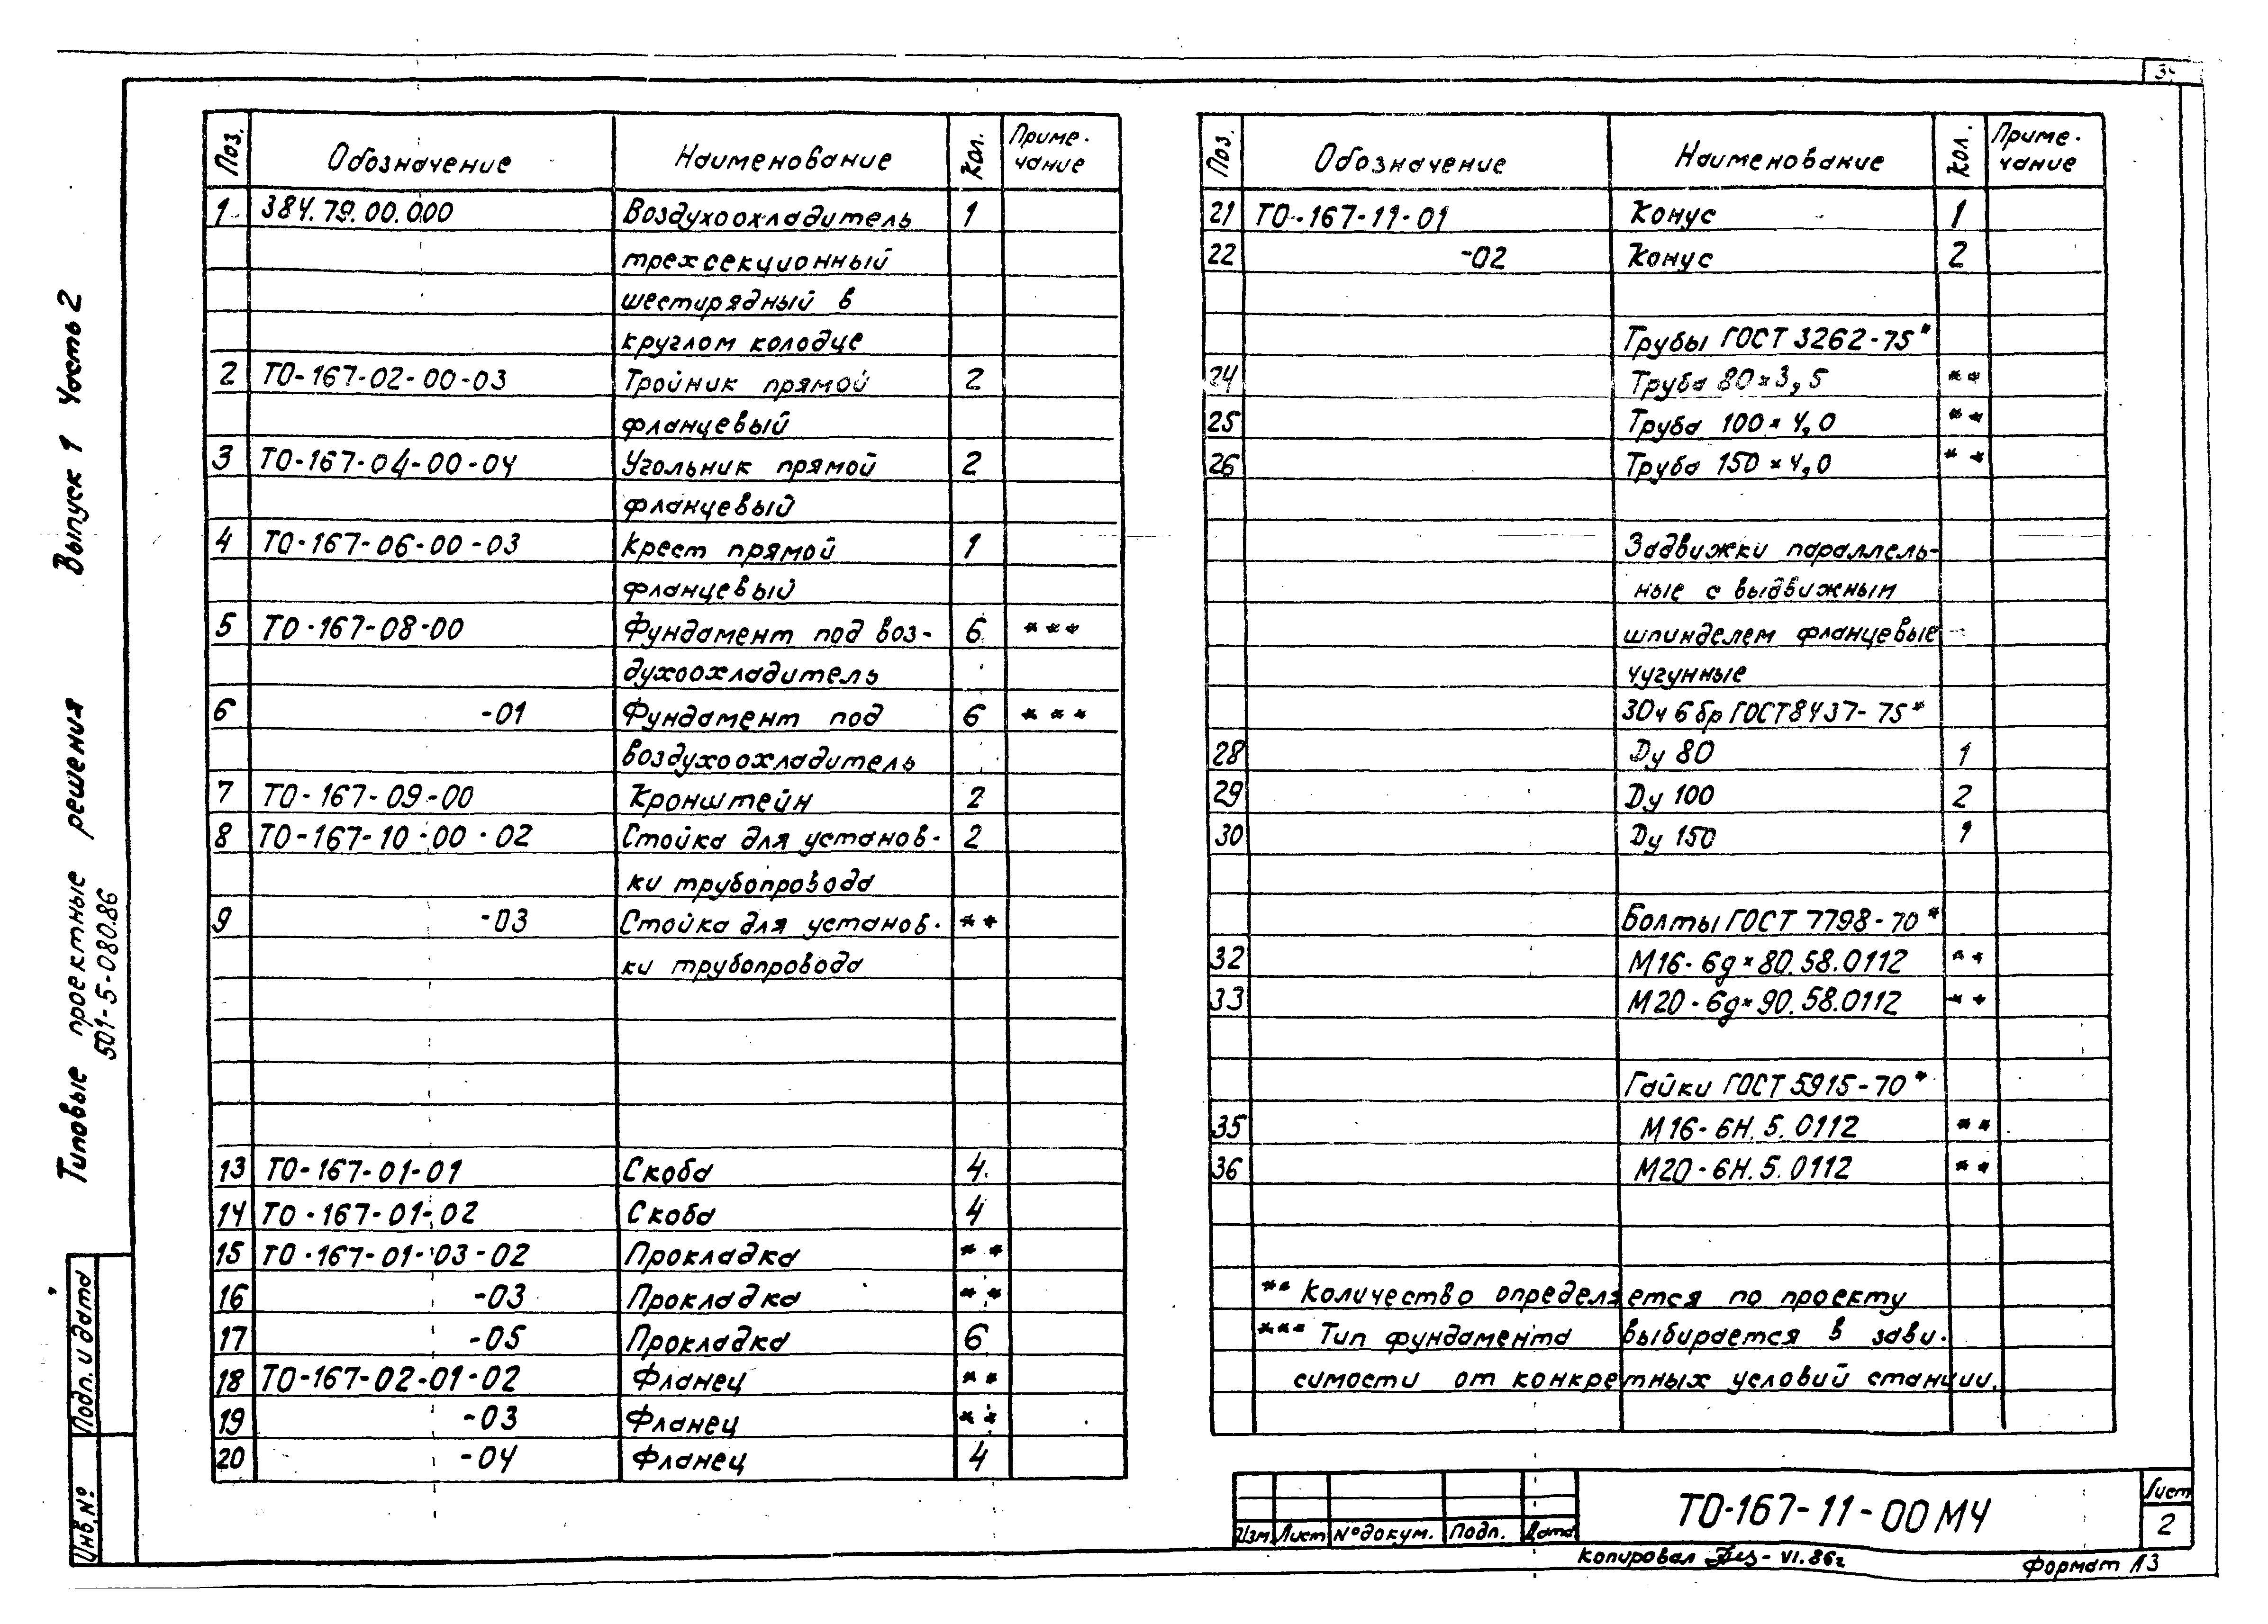 34
Типовые проектные решения Выпуск 1 Часть 2
501-5-080.86
Подп. и дата
Инв. №
Поз. Обозначение Наименование Кол. Приме-
чание
1 384.79.00.000 Воздухоохладитель 1
трехсекционный
шестирядный в
круглом колодце
2 ТО-167-02-00-03 Тройник прямой 2
фланцевый
3 ТО-167-04-00-04 Угольник прямой 2
фланцевый
4 ТО-167-06-00-03 Крест прямой 1
фланцевый
5 ТО-167-08-00 Фундамент под воз- 6 ***
духоохладитель
6 -01 Фундамент под 6 ***
воздухоохладитель
7 ТО-167-09-00 Кронштейн 2
8 ТО-167-10-00-02 Стойка для установ- 2
ки трубопровода
9 -03 Стойка для установ- **
ки трубопровода
13 ТО-167-01-01 Скоба 4
14 ТО-167-01-02 Скоба 4
15 ТО-167-01-03-02 Прокладка **
16 -03 Прокладка **
17 -05 Прокладка 6
18 ТО-167-02-01-02 Фланец **
19 -03 Фланец **
20 -04 Фланец 4
Поз. Обозначение Наименование Кол. Приме-
чание
21 ТО-167-11-01 Конус 1
22 -02 Конус 2
Трубы ГОСТ 3262-75*
24 Труба 80×3,5 **
25 Труба 100×4,0 **
26 Труба 150×4,0 **
Задвижки параллель-
ные с выдвижным
шпинделем фланцевые
чугунные
30ч6бр ГОСТ8437-75*
28 Ду 80 1
29 Ду 100 2
30 Ду 150 1
Болты ГОСТ 7798-70*
32 М16-6g×80.58.0112 **
33 М20-6g×90.58.0112 **
Гайки ГОСТ 5915-70*
35 М16-6Н.5.0112 **
36 М20-6Н.5.0112 **
** Количество определяется по проекту
*** Тип фундамента выбирается в зави-
симости от конкретных условий станции.
Изм. Лист № докум. Подп. Дата
ТО-167-11-00 МЧ
Лист
2
Копировал VI.86г
Формат А3